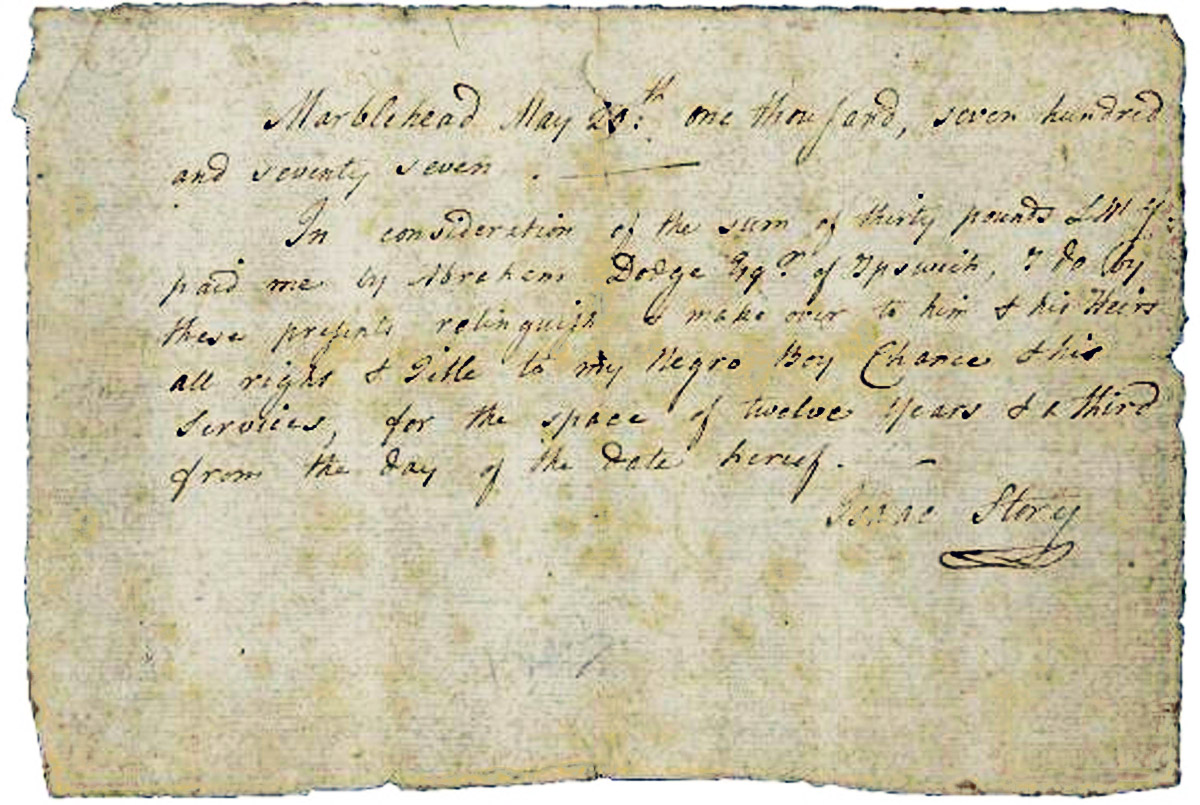 Marblehead May 20th. one thousand, seven hundred
and seventy seven . —
In consideration of the sum of thirty pounds L. M'y
paid me by Abraham Dodge Esqr. of Ipswich, I do by
these presents relinquish & make over to him & his Heirs
all right & Title to my Negro Boy Chance & his
Services, for the space of twelve years & a third
from the day of the date hereof. —
Isaac Story